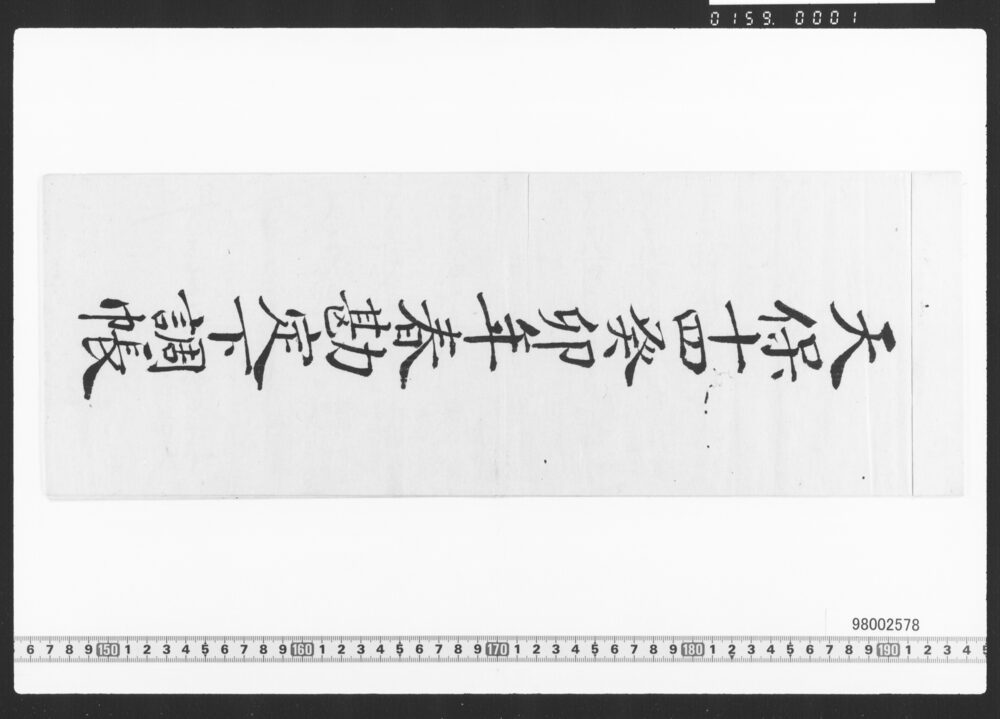 0159.0001
天保十四癸卯年春勘定下調帳
98002578
6 7 8 9 150 1 2 3 4 5 6 7 8 9 160 1 2 3 4 5 6 7 8 9 170 1 2 3 4 5 6 7 8 9 180 1 2 3 4 5 6 7 8 9 190 1 2 3 4 5